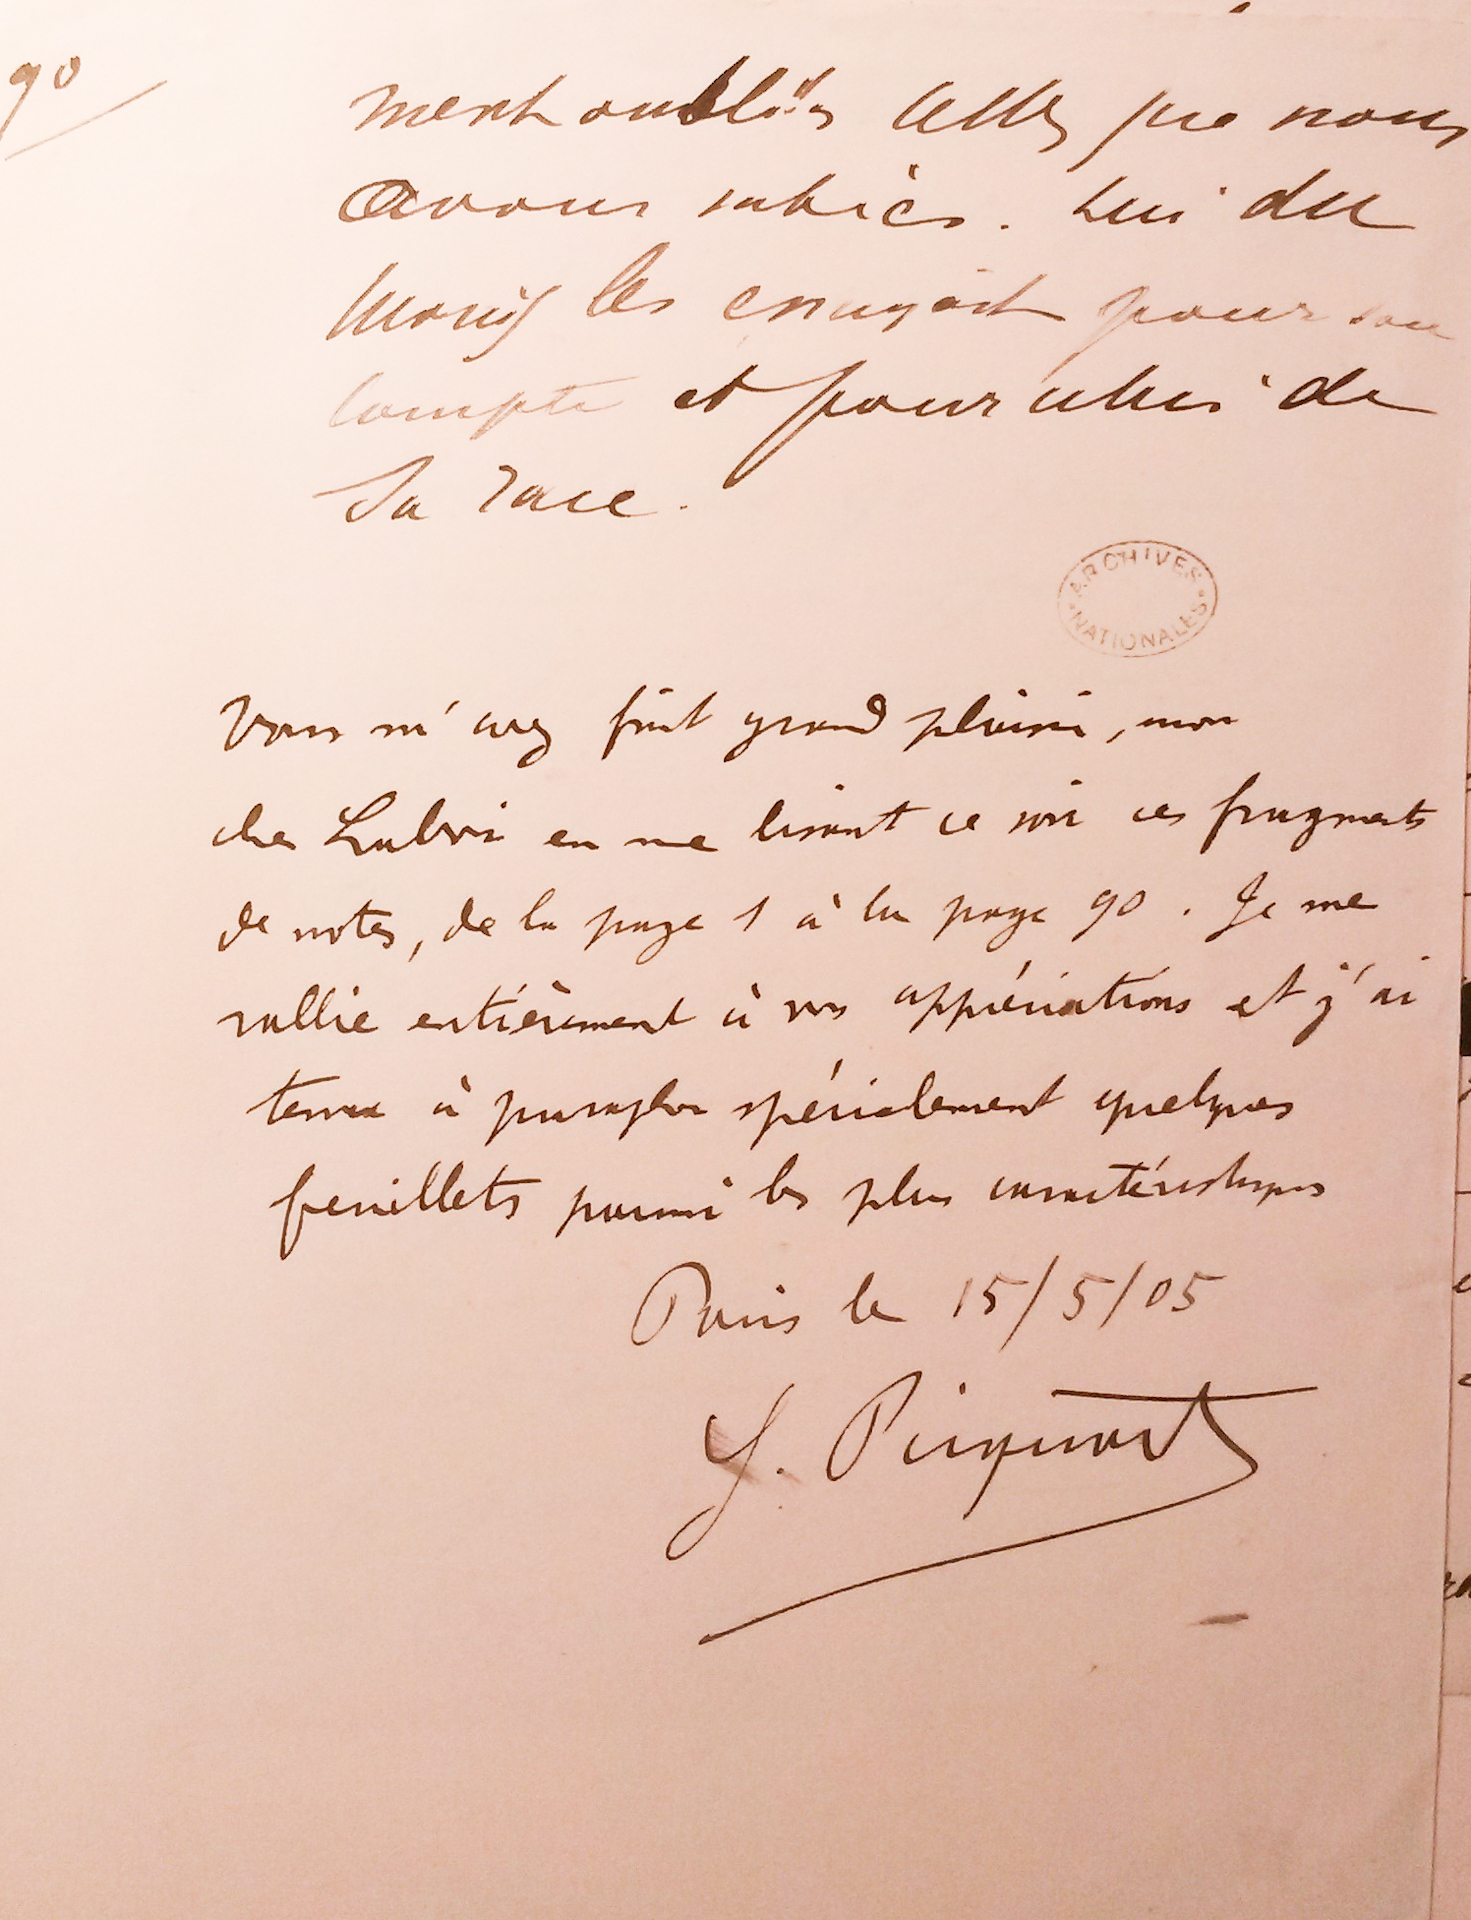 90
ment oubliées celles que nous
avons subies. Lui du
moins les essuyait pour son
compte et pour celui de
sa race.
ARCHIVES
NATIONALES
Vous m'avez fait grand plaisir, mon
cher Labori en me lisant ce soir ces fragments
de notes, de la page 1 à la page 90. Je me
rallie entièrement à vos appréciations et j'ai
tenu à parapher spécialement quelques
feuillets parmi les plus caractéristiques
Paris le 15/5/05
G. Picquart